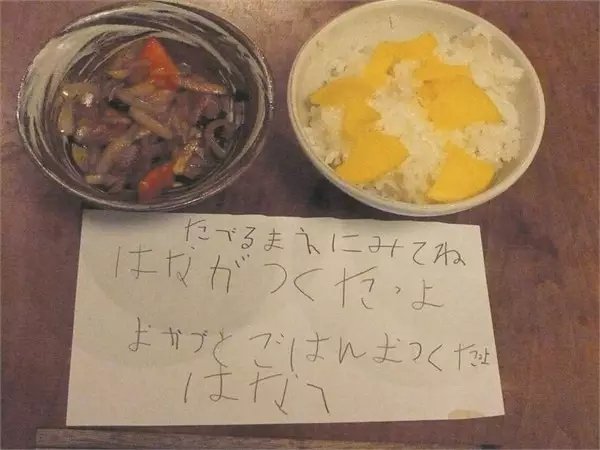 たべるまえにみてね
はながつくたっよ
おかづとごはんおつくたっよ
はなへ